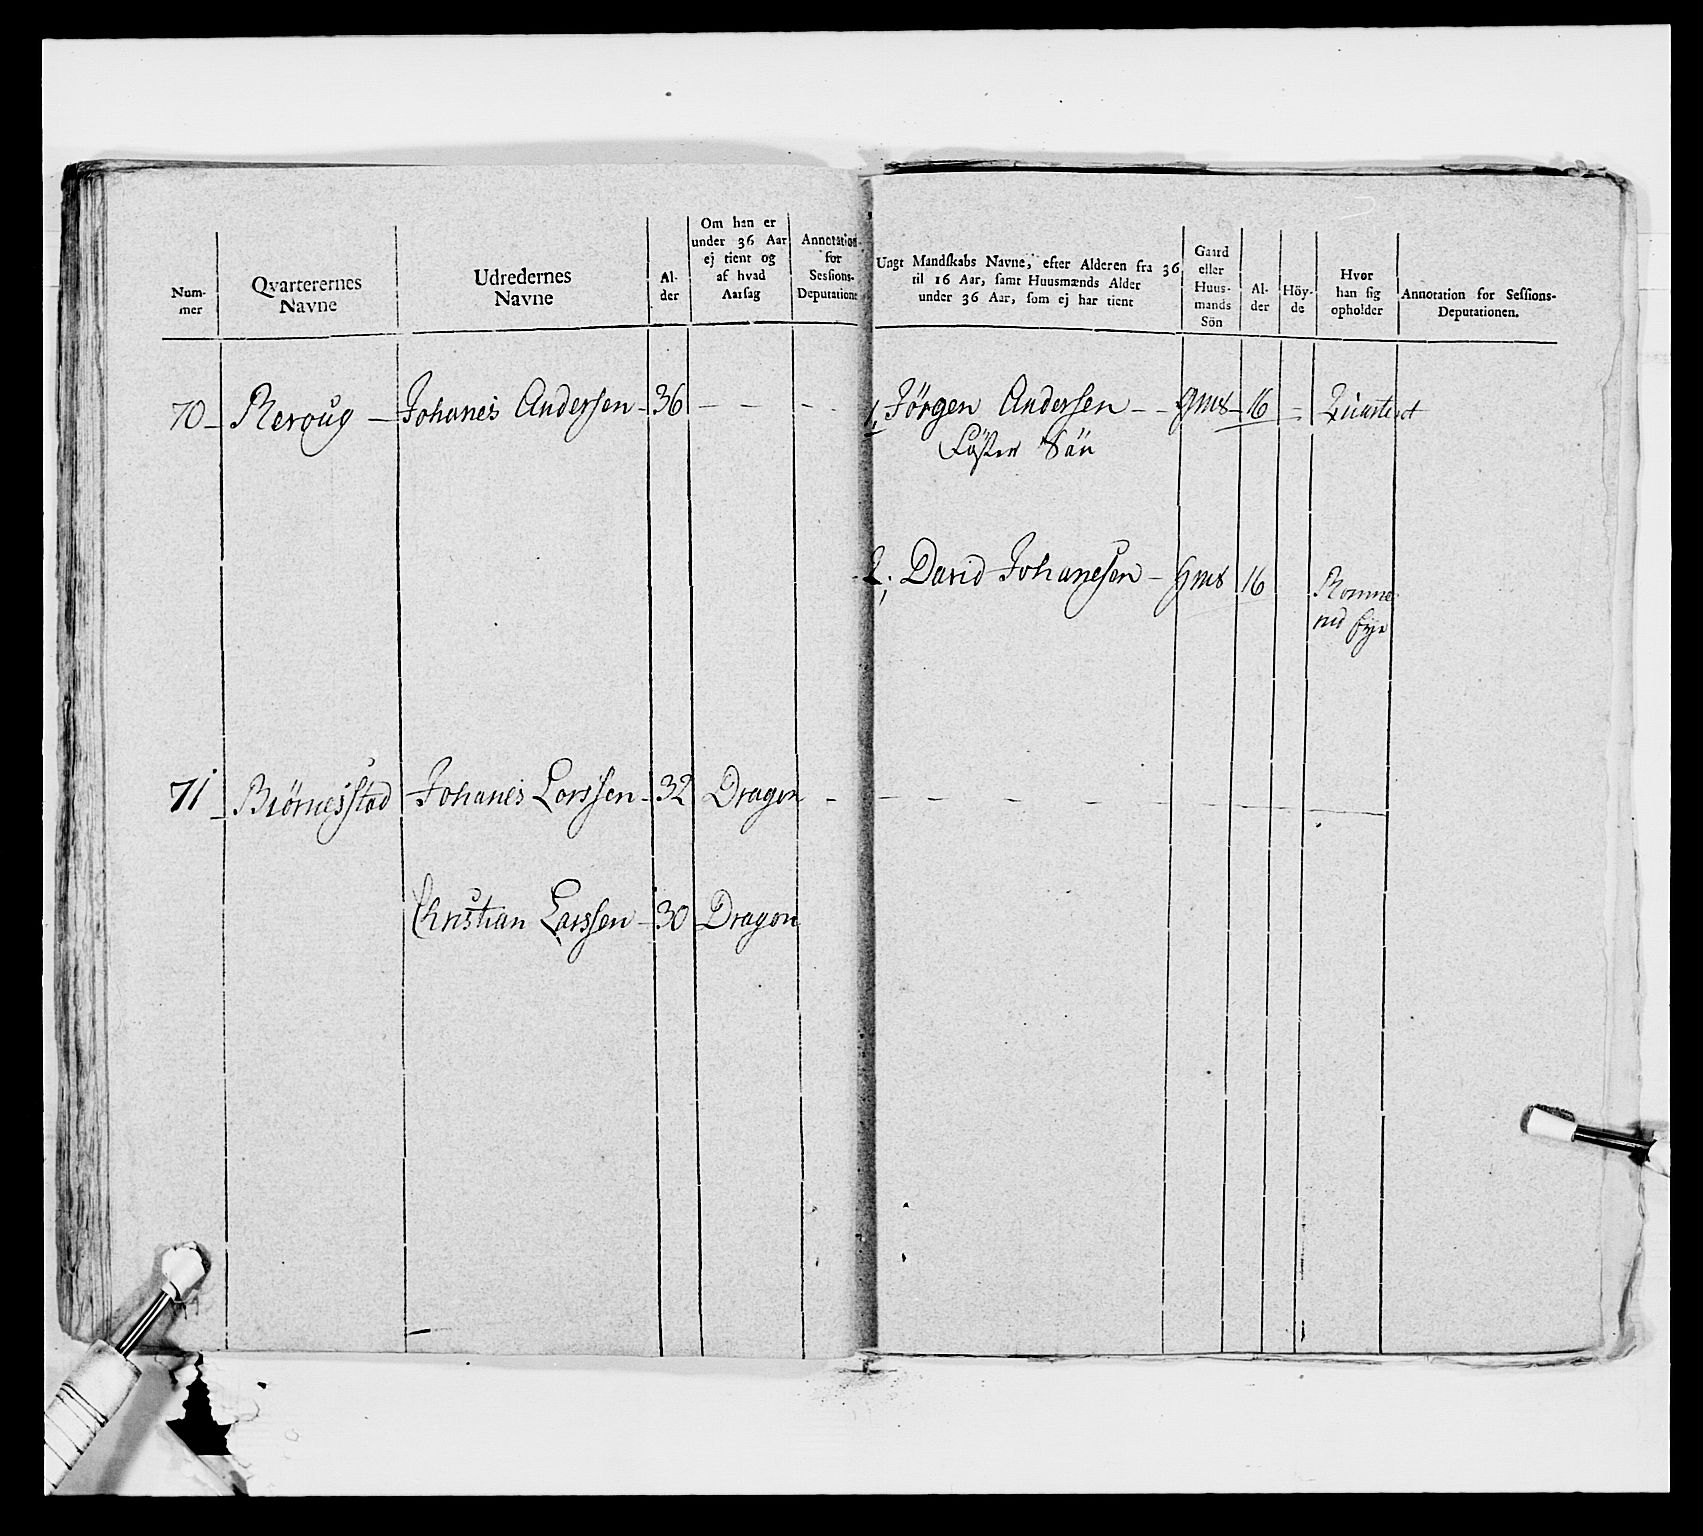 Num-
mer
Qvarterernes
Navne
Udredernes
Navne
Al-
der
Om han er
under 36 Aar
ej tient og
af hvad
Aarsag
Annotation
for
Sessions-
Deputationen
Ungt Mandskabs Navne, efter Alderen fra 36
til 16 Aar, samt Huusmænds Alder
under 36 Aar, som ej har tient
Gaard
eller
Huus-
mands
Sön
Al-
der
Höy-
de
Hvor
han sig
opholder
Annotation for Sessions-
Deputationen.
70 - Reroug - Johanes Andersen - 36 - - - - 1, Jörgen Andersen - - gms - 16 = Quarteret
Föster Sön
2; David Johanesen - gms 16
71 - Biörnesstad Johanes Larssen - 32 Dragon - - - - - - -
Christian Larssen - 30 Dragon